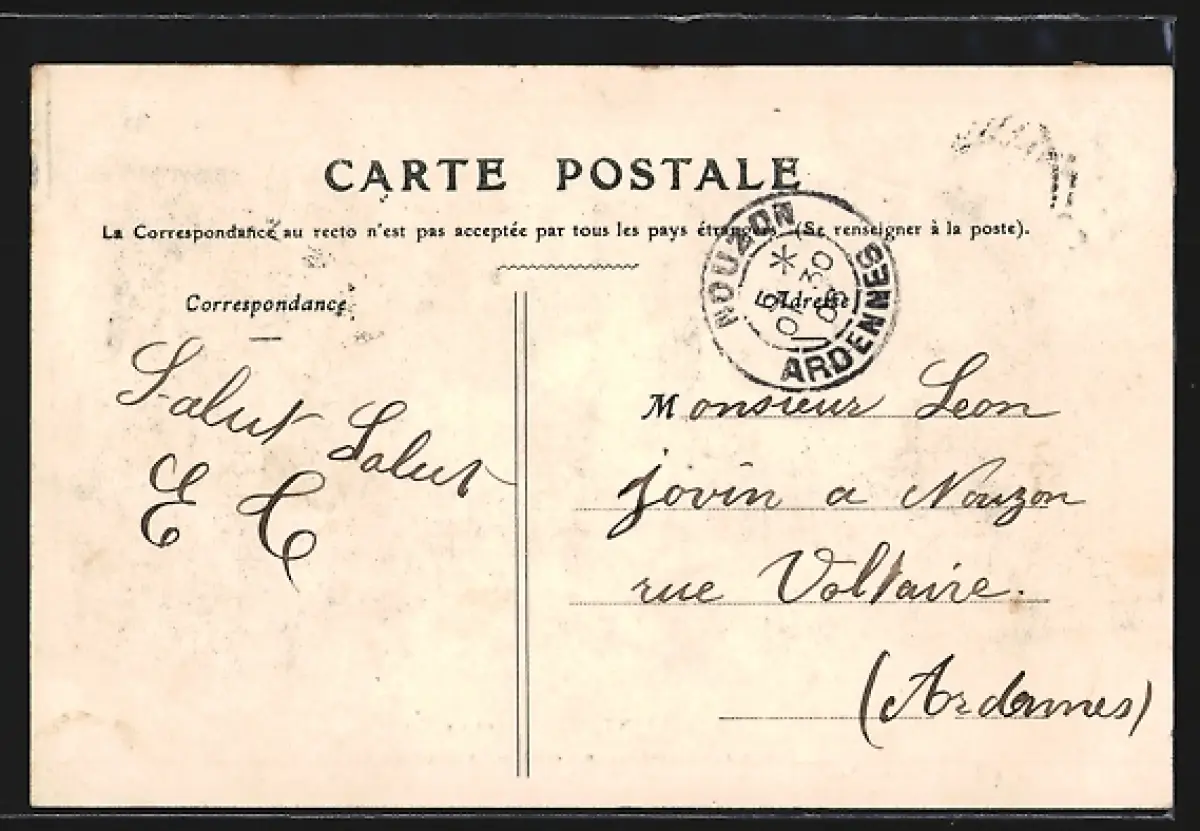 CARTE POSTALE
La Correspondance au recto n'est pas acceptée par tous les pays étrangers (Se renseigner à la poste).
Correspondance
L'Adresse
NOUZON
ARDENNES
Salut Salut
E C
Monsieur Leon
Jovin a Nouzon
rue Voltaire.
(Ardennes)